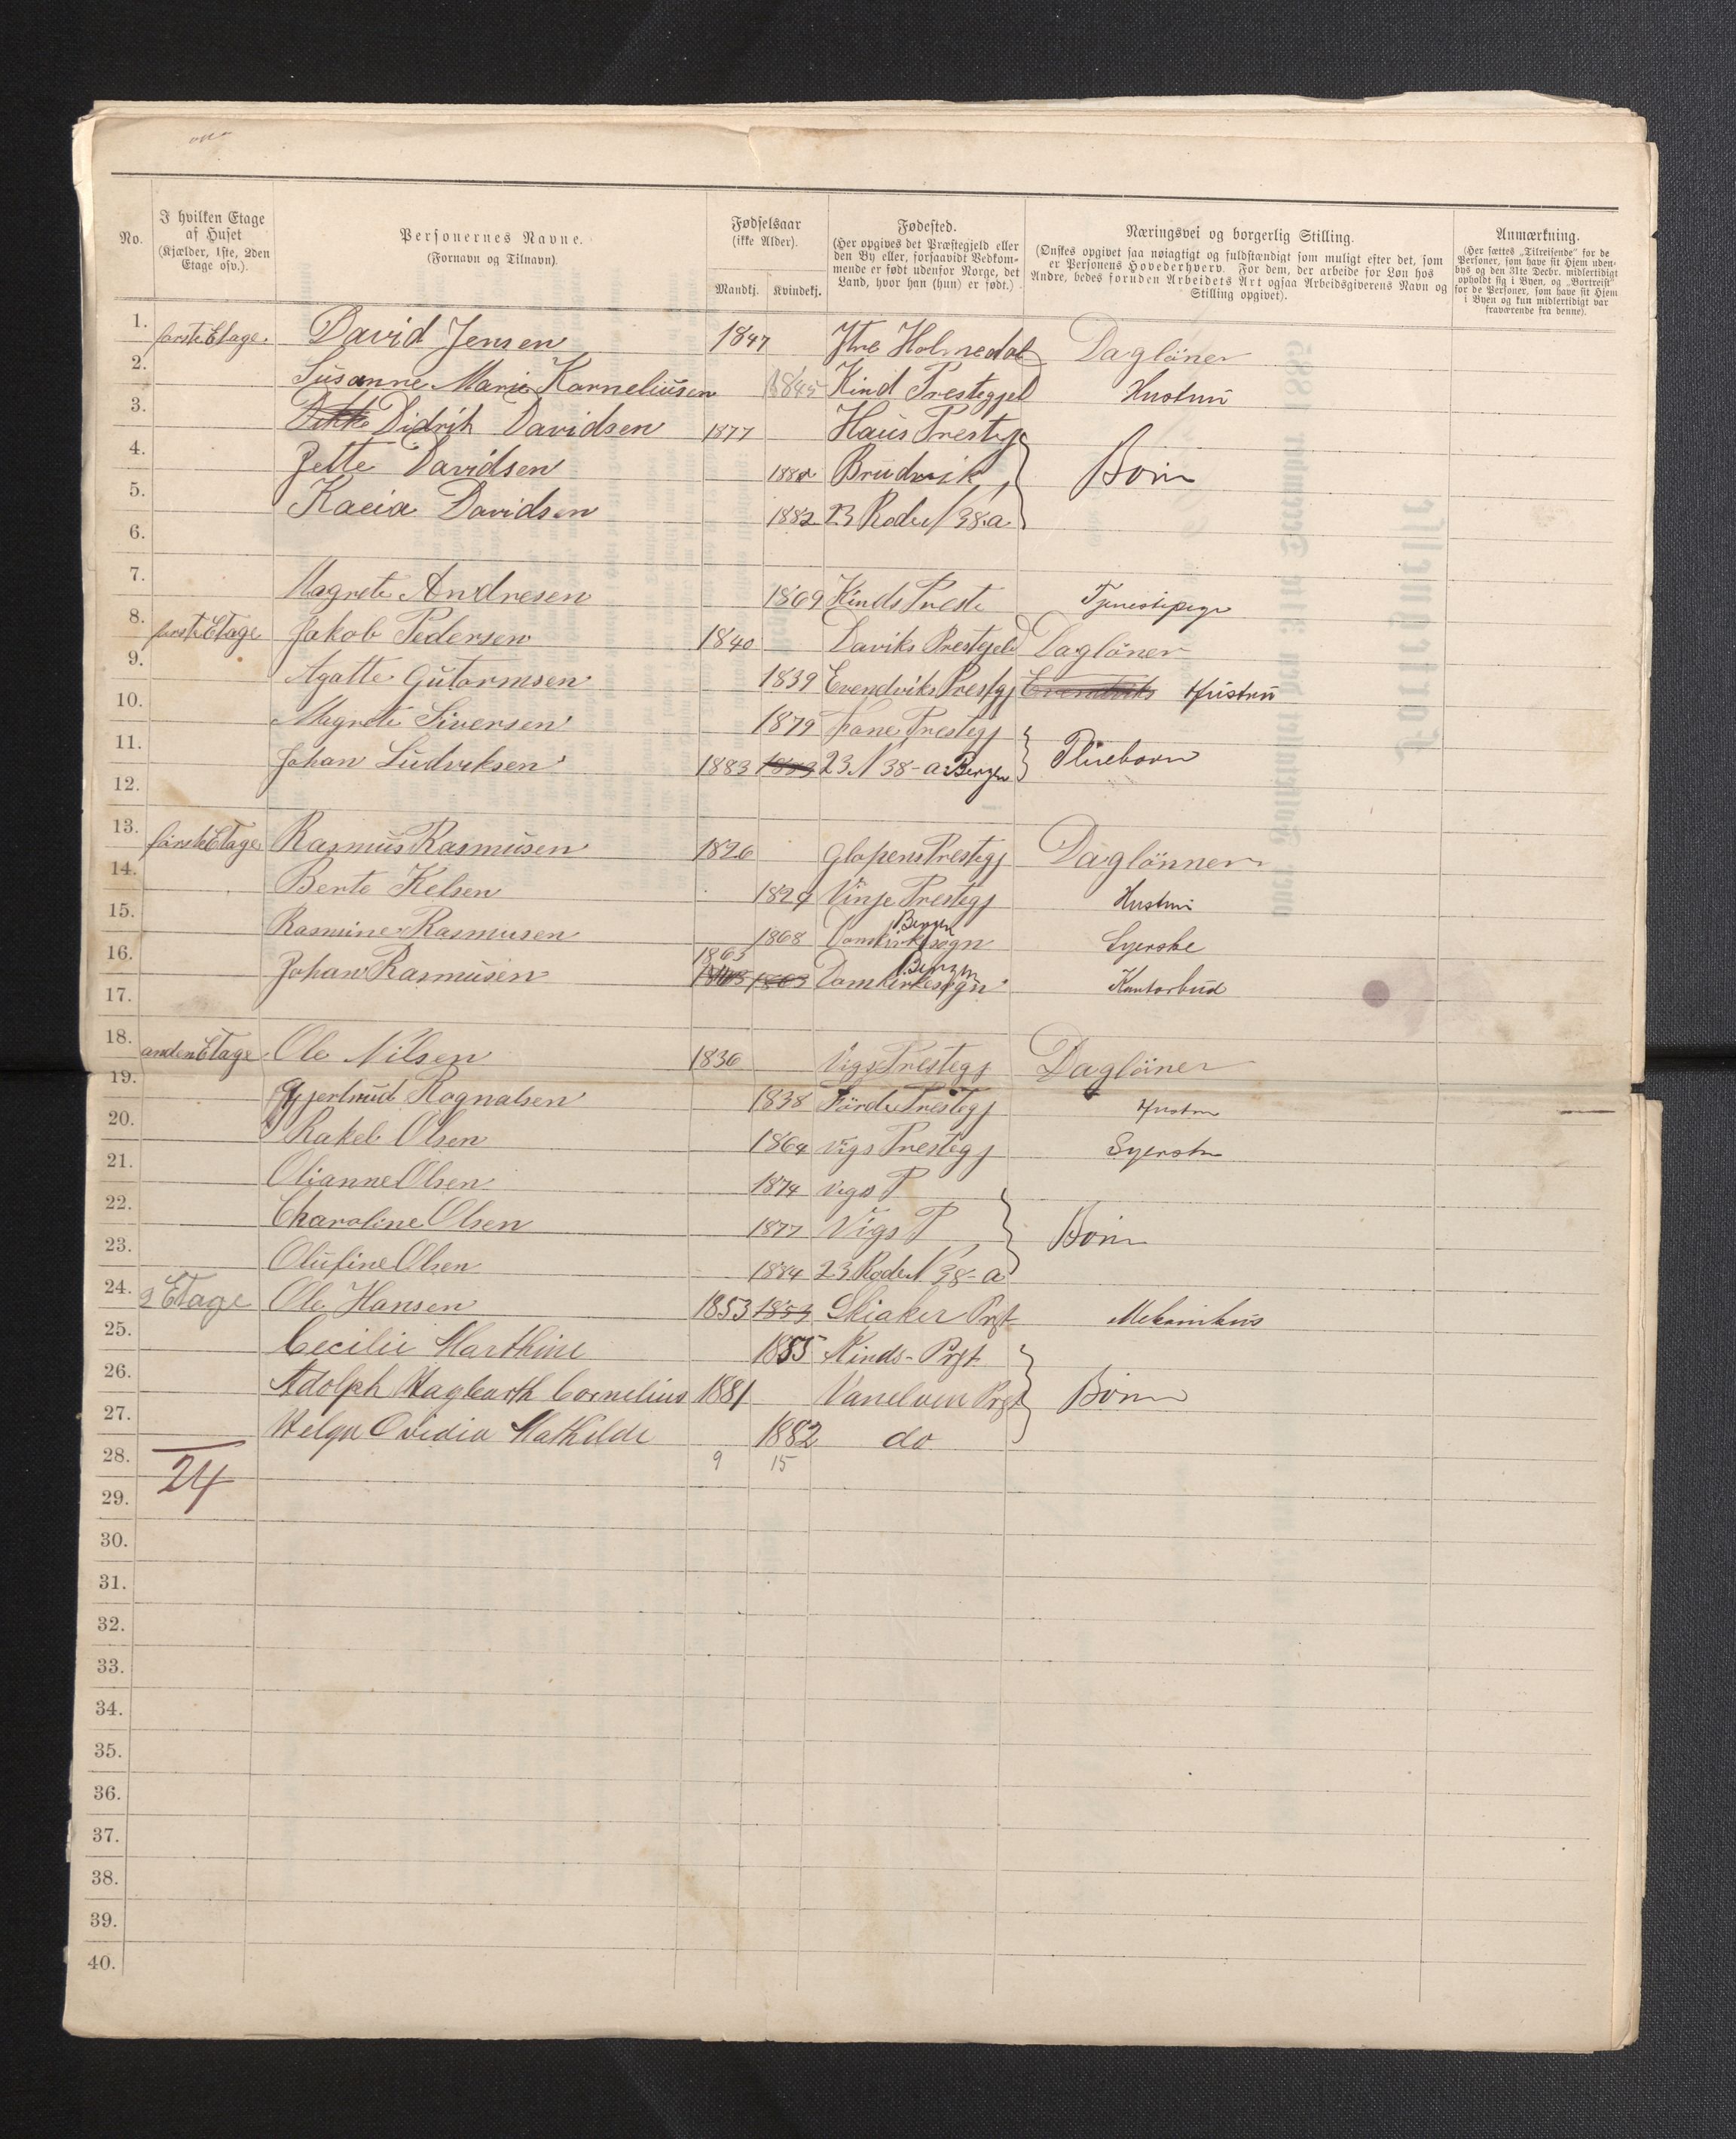 No.
I hvilken Etage af Huset (Kjælder, 1ste, 2den Etage osv.).
Personernes Navne. (Fornavn og Tilnavn).
Fødselsaar (ikke Alder).
Mandkj. Kvindekj.
Fødested. (Her opgives det Præstegjeld eller den By eller, forsaavidt Vedkommende er født udenfor Norge, det Land, hvor han (hun) er født.)
Næringsvei og borgerlig Stilling. (Ønskes opgivet saa nøiagtigt og fuldstændigt som muligt efter det, som er Personens Hovederhverv. For dem, der arbeide for Løn hos Andre, bedes foruden Arbeidets Art ogsaa Arbeidsgiverens Navn og Stilling opgivet).
Anmærkning. (Her sættes „Tilreisende" for de Personer, som have sit Hjem udenbys og den 31te Decbr. midlertidigt opholdt sig i Byen, og „Bortreist" for de Personer, som have sit Hjem i Byen og kun midlertidigt var fraværende fra denne).
1. første Etage. David Jensen 1847 Ytre Holmedal Daglöner
2. Susanne Marie Korneliusen 1845 Kind Prestegjel Hustru
3. Didrik Davidsen 1877 Haus Prestg
4. Jette Davidsen 188 Brudvik Börn
5. Kacia Davidsen 1882 23 Rode N 38.a
6.
7. Magrete Andresen 1869 Kinds Preste Tjenestepige
8. første Etage Jakob Pedersen 1840 Daviks Prestejeld Daglöner
9. Agatte Gutormsen 1839 Evendviks Prestgj Evendviks Hustru
10. Magrete Siversen 1879 Fane Prestegj
11. Johan Ludviksen 1883 1883 23 N 38-a Bergen Pleiebørn
12.
13. første Etage Rasmus Rasmusen 1826 Glopens Prestegj Daglönner
14. Berte Kelsen 1824 Vinje Prestegj Hustru
15. Rasmine Rasmusen 1868 Domkirksogn Bergen Syerske
16. Johan Rasmusen 1863 1863 1863 Domkirkesogn Bergen Kontorbud
17.
18. anden Etage Ole Nilsen 1836 Vigs Prestegj Daglöner
19. Gjertrud Rognalsen 1838 Förde Prestegj Hustru
20. Rakel Olsen 1864 Vigs Prestegj Syerske
21. Olianne Olsen 1874 Vigs P
22. Charoline Olsen 1877 Vigs P Börn
23. Olufine Olsen 1884 23 Rode N 38-a
24. 2 Etage Ole Hansen 1853 1853 Skiaker Prgt Mekanikus
25. Cecilie Marthine 1885 Kinds-Prgt
26. Adolph Hagbarth Cornelius 1881 Vanelven Prgt Börn
27. Helga Ovidia Mathilde 1882 do
28. 24 9 15
29.
30.
31.
32.
33.
34.
35.
36.
37.
38.
39.
40.